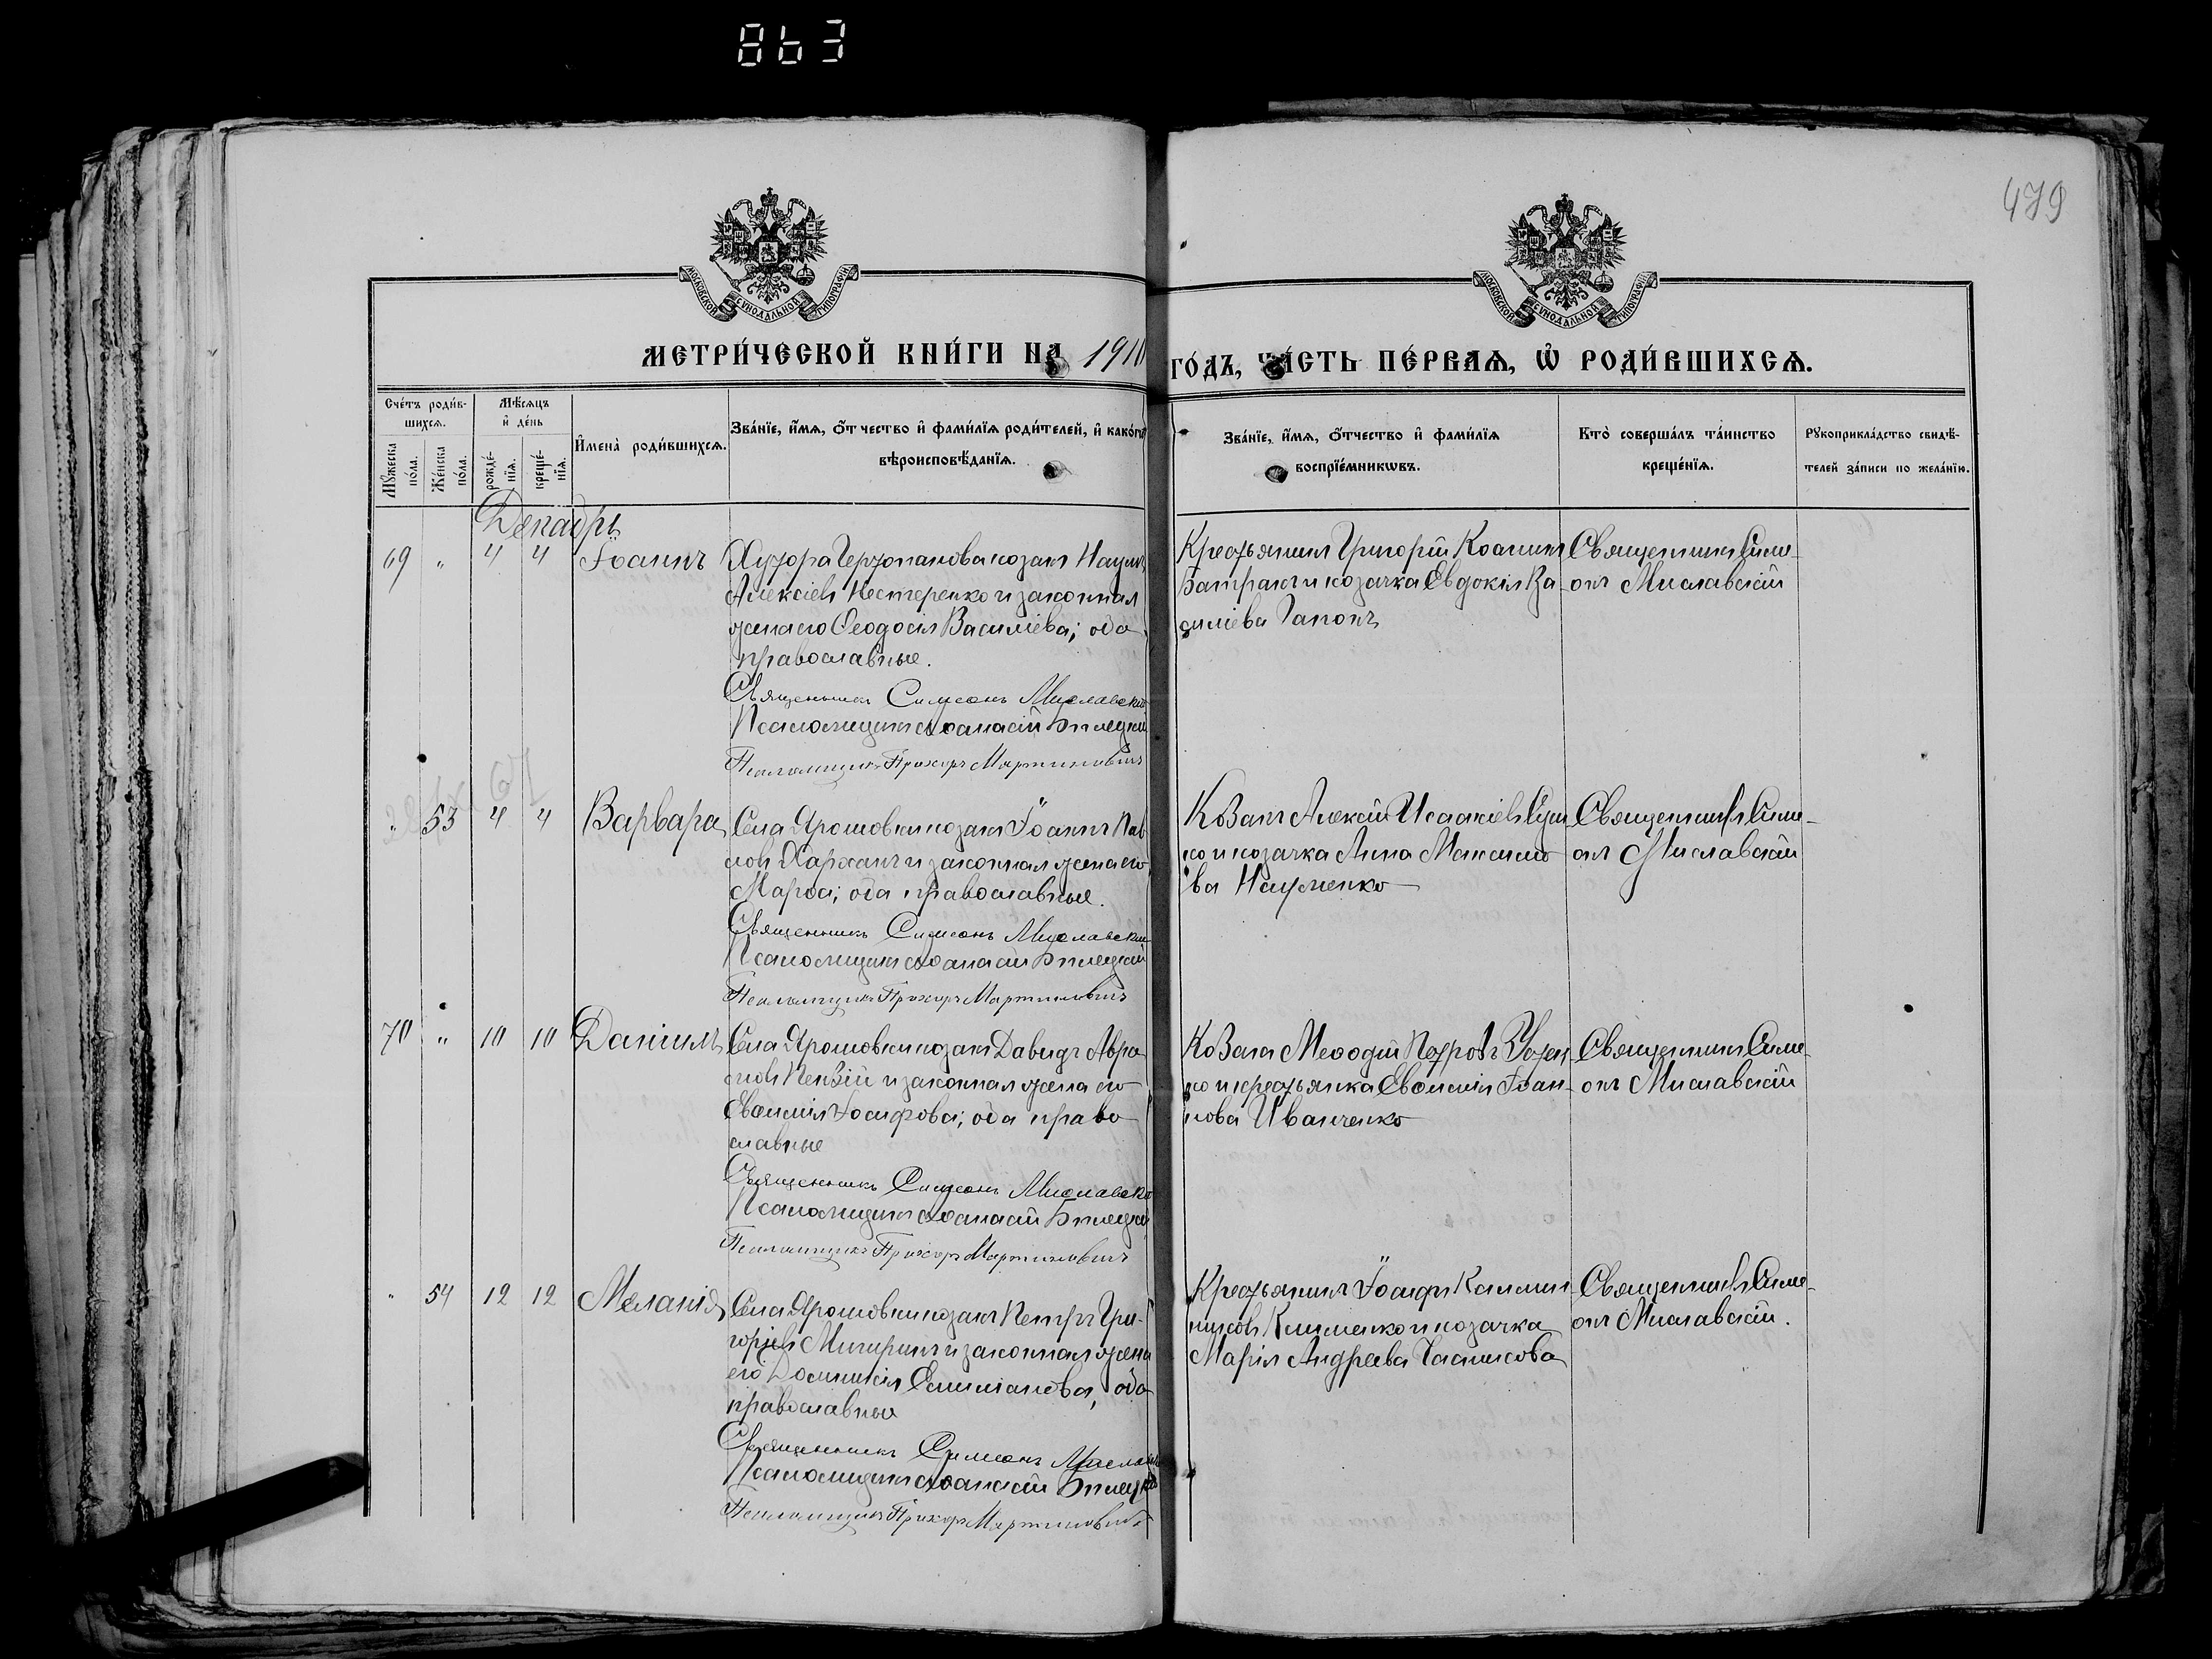 863
479
МОСКОВСКОЙ СѴНОДАЛЬНОЙ ТИПОГРАФІИ
МОСКОВСКОЙ СѴНОДАЛЬНОЙ ТИПОГРАФІИ
МЕТРИ́ЧЕСКОЙ КНИ́ГИ НА 1910 ГО́ДЪ, ЧА́СТЬ ПЕ́РВАѦ, Ѽ РОДИ́ВШИХСѦ.
Сче́тъ роди́в-
шихсѧ.
Мꙋ́жеска по́ла.
Же́нска по́ла.
Мѣ́сѧцъ
и҆ де́нь
рожде́-
нїѧ.
креще́-
нїѧ.
И҆мена̀ роди́вшихсѧ.
Зва́нїе, и҆́мѧ, ѻ҆́тчество и҆ фами́лїѧ роди́телей, и҆ како́гѡ
вѣроисповѣ́данїѧ.
Зва́нїе, и҆́мѧ, ѻ҆́тчество и҆ фами́лїѧ
воспрїе́мникѡвъ.
Кто̀ соверша́лъ та́инство
креще́нїѧ.
Рꙋкоприкла́дство свидѣ́-
телей за́писи по жела́нїю.
Декабрь
69 " 4 4 Іоаннъ
Хутора козакъ Наумъ
Алексіевъ Нестеренко и законная
жена его Ѳеодосія Василіева; оба
православные.
Священникъ Симеонъ Миславскій
Псаломщикъ Аѳанасій Билецкій
Псаломщикъ Прохоръ Мартиновичъ
Крестьянинъ Григорій
и козачка Евдокія Ва-
силіева Гапонъ
Священникъ Симе-
онъ Миславскій
" 53 4 4 Варвара
Села Ярошовки козакъ Іоаннъ Пав-
ловъ Харханъ и законная жена его
Марѳа; оба православные.
Священникъ Симеонъ Миславскій
Псаломщикъ Аѳанасій Билецкій
Псаломщикъ Прохоръ Мартиновичъ
Козакъ Алексій Исаакіевъ
ко и козачка Анна Максимо-
ва Науменко
Священникъ Симе-
онъ Миславскій
70 " 10 10 Даніилъ
Села Ярошовки козакъ Давидъ Авра-
мовъ Пензій и законная жена его
Евѳимія Іосифова; оба право-
славные
Священникъ Симеонъ Миславскій
Псаломщикъ Аѳанасій Билецкій
Псаломщикъ Прохоръ Мартиновичъ
Козакъ Меѳодій Петровъ
ко и крестьянка Евѳимія Іоан-
нова Иванченко
Священникъ Симе-
онъ Миславскій
" 54 12 12 Меланія
Села Ярошовки козакъ Петръ Гри-
горіевъ и законная жена
его Домникія оба
православные
Священникъ Симеонъ Миславскій
Псаломщикъ Аѳанасій Билецкій
Псаломщикъ Прохоръ Мартиновичъ
Крестьянинъ Іосифъ Калли-
никовъ Клименко и козачка
Марія Андреева
Священникъ Симе-
онъ Миславскій.